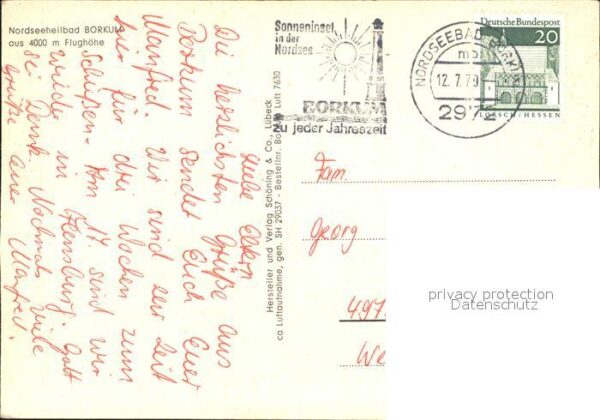 Nordseeheilbad BORKUM
aus 4000 m Flughöhe
Liebe Eltern
Die herzlichsten Grüße aus
Borkum sendet Euch Euer
Manfred. Wir sind zur Zeit
hier für drei Wochen zum
Schießen. Am 17. sind wir
wieder in Flensburg. Gott
sei Dank. Nochmals viele
Grüße euer Manfred.
Hersteller und Verlag Schöning & Co., Lübeck
ca Luftaufnahme, gen. SH 29037 - Bestellnr. Bor Luft 7630
Sonneninsel
in der
Nordsee
BORKUM
zu jeder Jahreszeit
NORDSEEBAD BORKUM
12.7.79
2972
Deutsche Bundespost
20
LORSCH/HESSEN
Fam.
Georg
497
We
privacy protection
Datenschutz